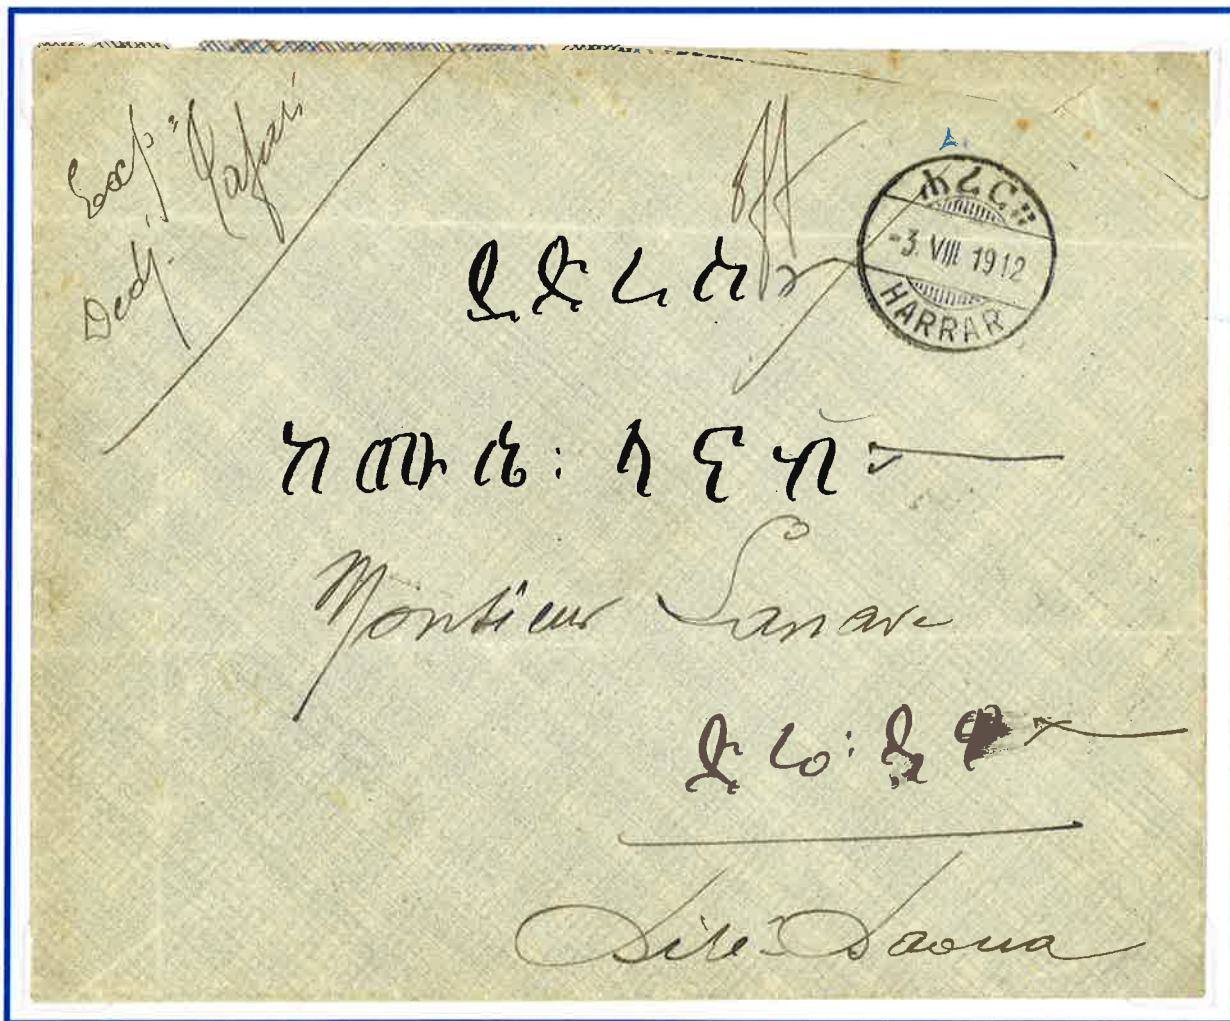 Exp:
Dedj. Tafari
ሐረር።
-3. VIII 1912
HARRAR
ይድረስ
ከሙሴ፡ ላኛብ
Monsieur Lanave
ድሬ፡ ዳዋ
Diré-Daoua